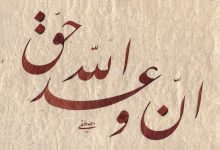 انّ وعد اللّه حقّ